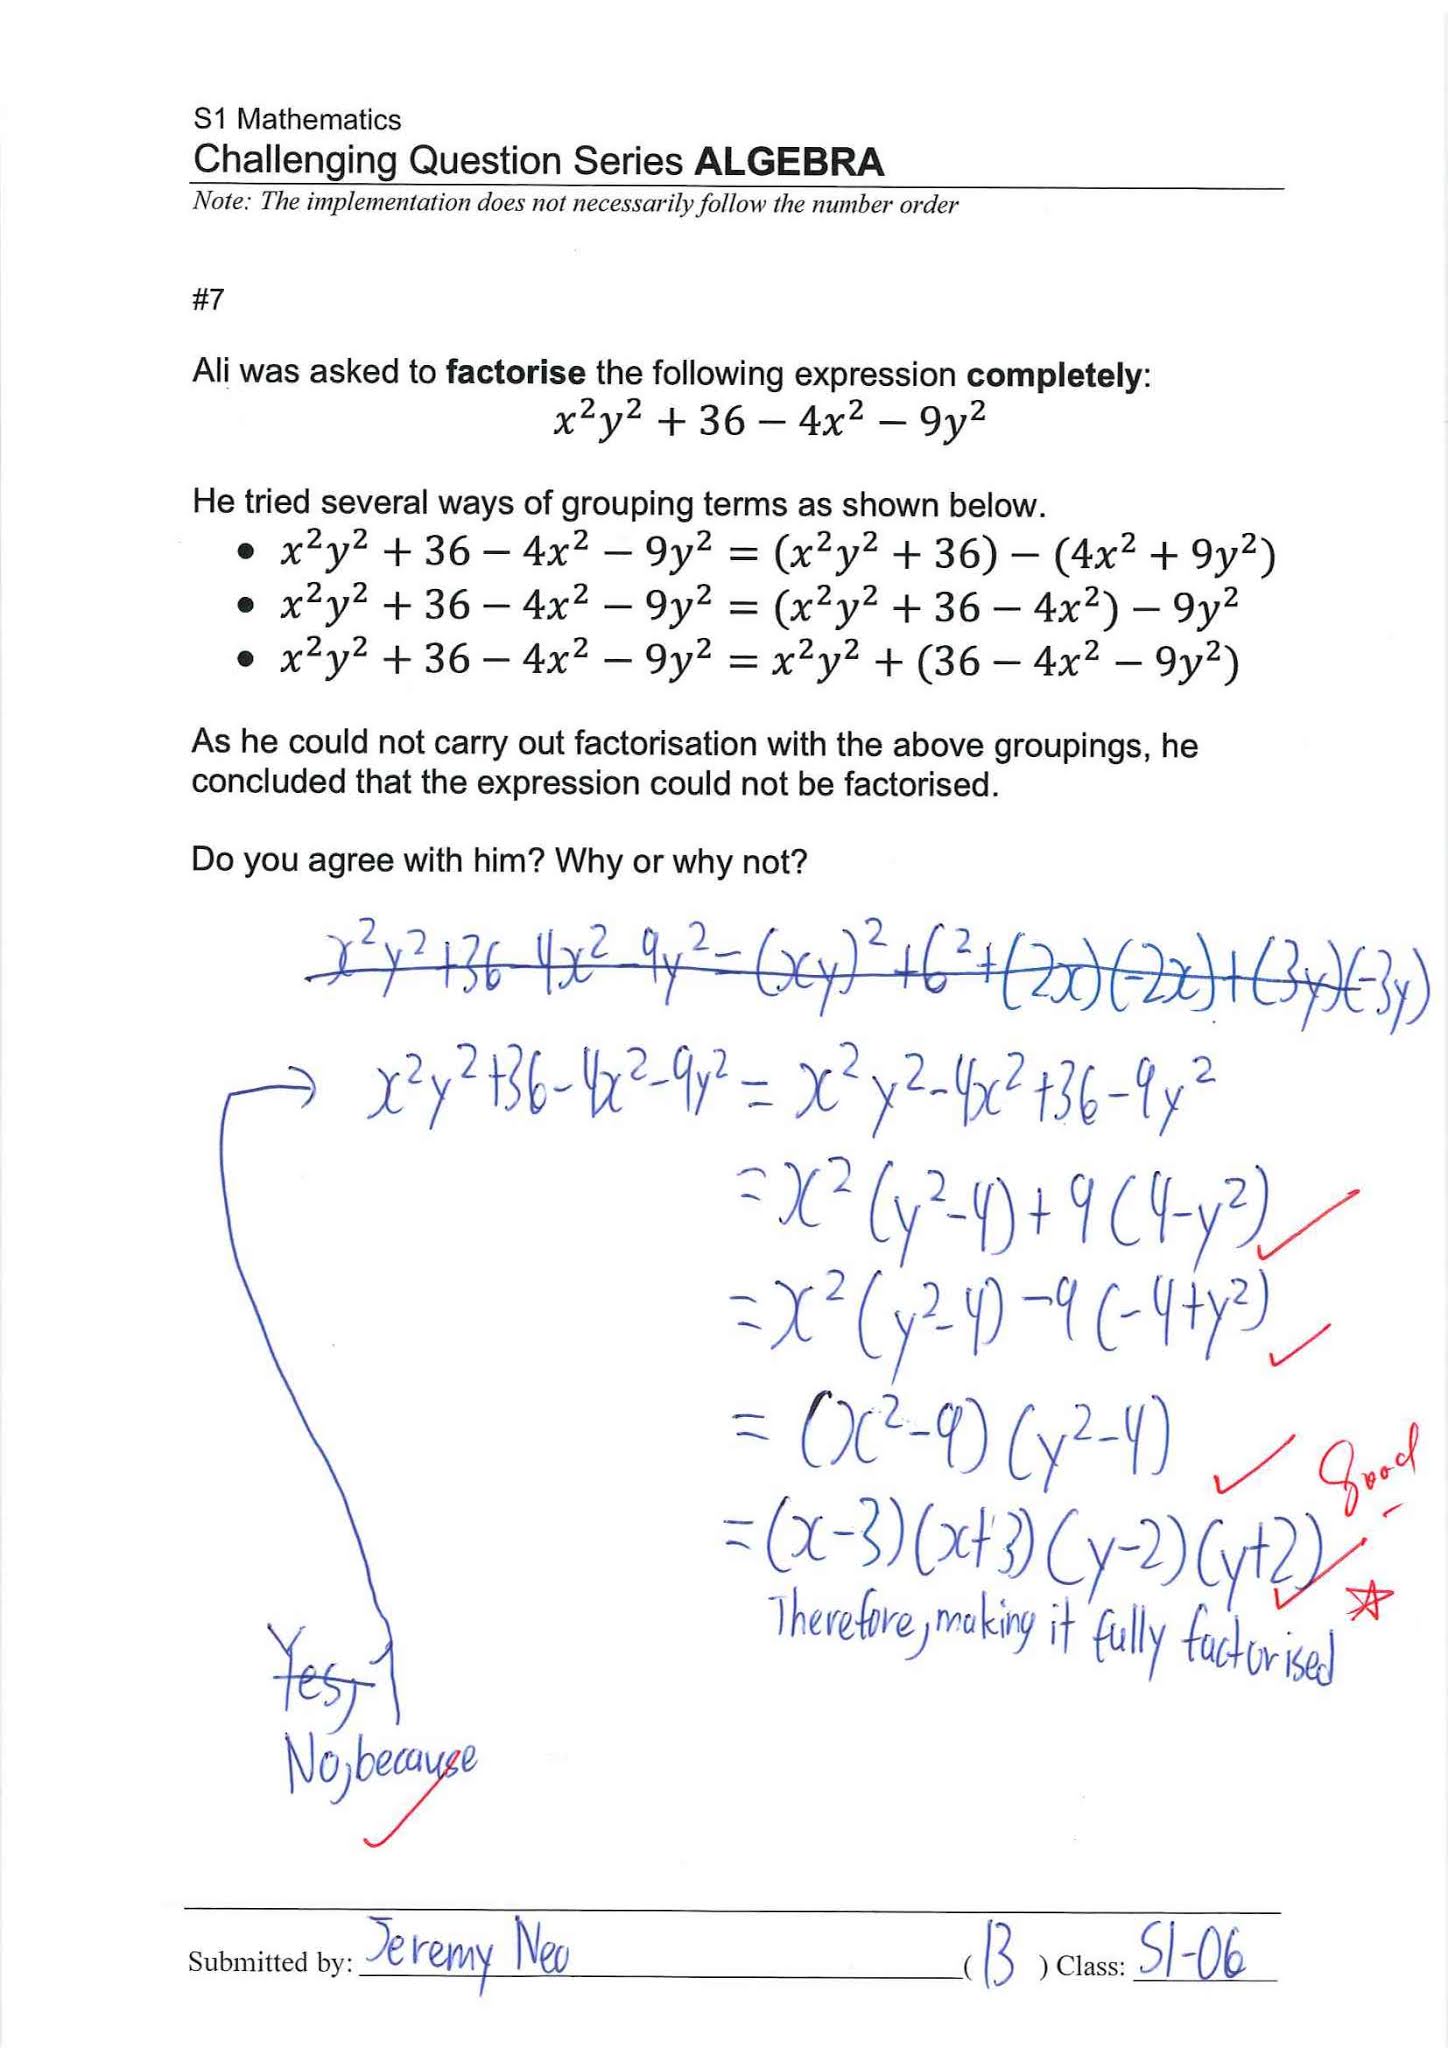 S1 Mathematics
Challenging Question Series ALGEBRA
Note: The implementation does not necessarily follow the number order
#7
Ali was asked to factorise the following expression completely:
x²y² + 36 − 4x² − 9y²
He tried several ways of grouping terms as shown below.
• x²y² + 36 − 4x² − 9y² = (x²y² + 36) − (4x² + 9y²)
• x²y² + 36 − 4x² − 9y² = (x²y² + 36 − 4x²) − 9y²
• x²y² + 36 − 4x² − 9y² = x²y² + (36 − 4x² − 9y²)
As he could not carry out factorisation with the above groupings, he
concluded that the expression could not be factorised.
Do you agree with him? Why or why not?
x²y²+36-4x²-9y²=(xy)²+6²+(2x)(-2x)+(3y)(-3y)
→ x²y²+36-4x²-9y² = x²y²-4x²+36-9y²
=x²(y²-4)+9(4-y²)
=x²(y²-4)-9(-4+y²)
=(x²-9)(y²-4)
Good
=(x-3)(x+3)(y-2)(y+2)
Therefore, making it fully factorised
Yes,
No, because
Submitted by: Jeremy Neo (13) Class: S1-06